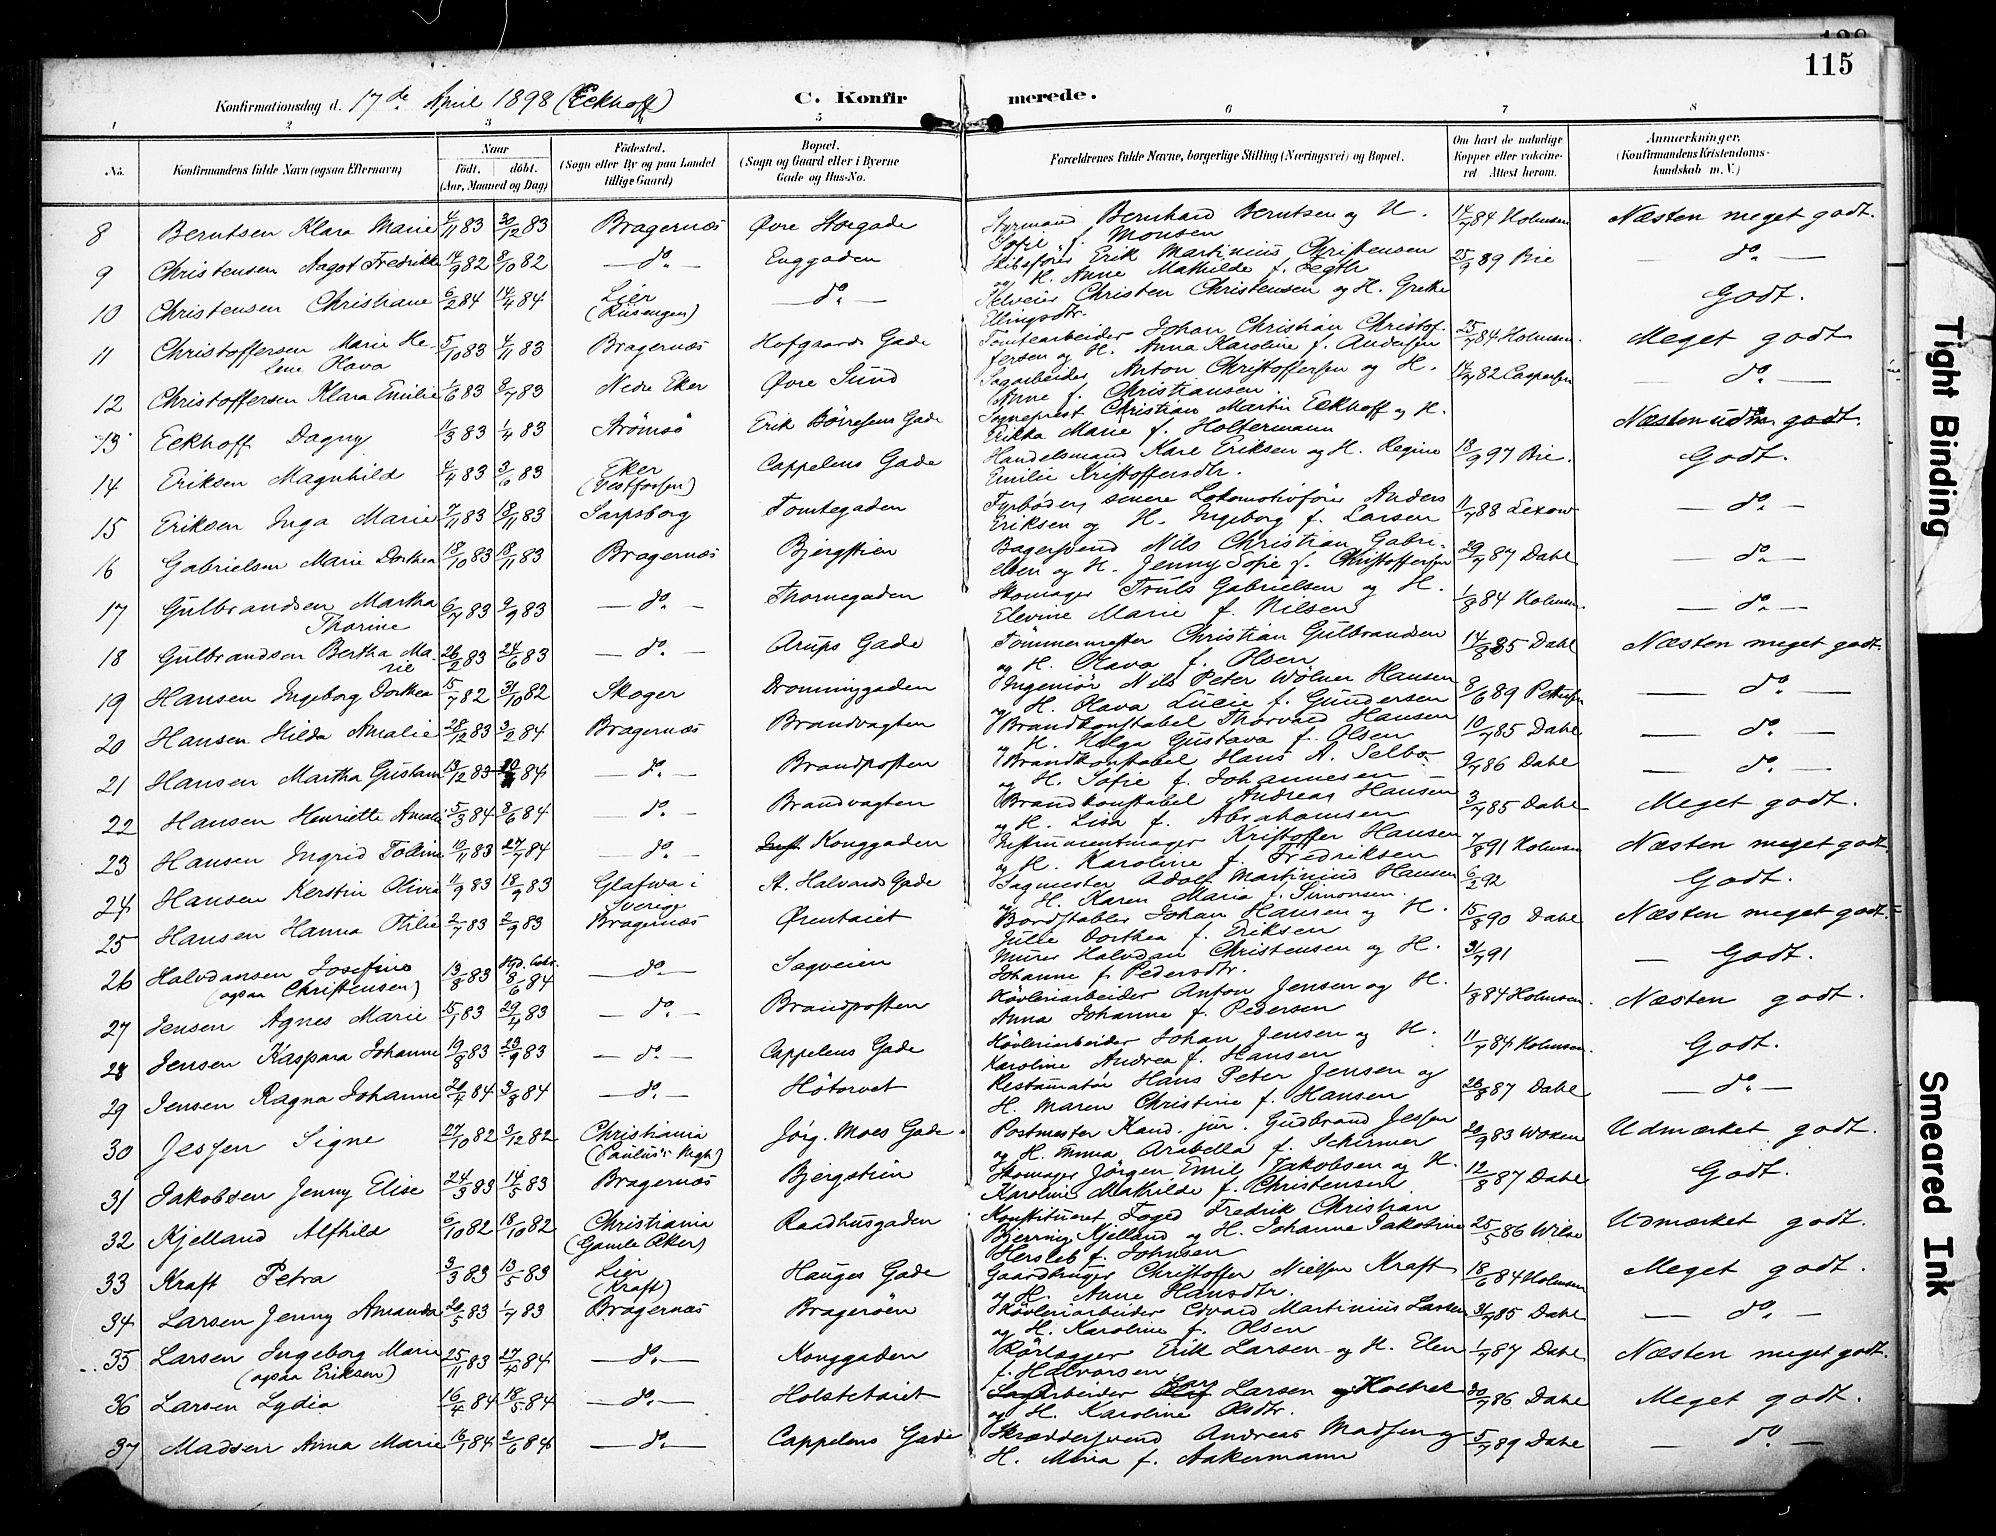 115
Konfirmationsdag d. 17de April 1898 (Eckhoff) C. Konfirmerede.
1 2 3 4 5 6 7 8
No. Konfirmandens fulde Navn (ogsaa Efternavn) Naar født. døbt. (Aar, Maaned og Dag) Fødested. (Sogn eller By og paa Landet tillige Gaard) Bopæl. (Sogn og Gaard eller i Byerne Gade og Hus-No. Forældrenes fulde Navne, borgerlige Stilling (Næringsvei) og Bopæl. Om havt de naturlige Kopper eller vaccineret Attest herom. Anmærkninger. (Konfirmandens Kristendomskundskab m. V.)
8 Berntsen Klara Marie 4/11 83 30/12 83 Bragernæs Øvre Storgade Styrmand Bernhard Berntsen og H. Sofie f. Monsen 14/7 84 Holmsen Næsten meget godt.
9 Christensen Aagot Fredrikke 14/9 82 8/10 82 — do. — Enggaden Skibsfører Erik Martinius Christensen og H. Anne Mathilde f. Fegth 25/9 89 Bie — do. —
10 Christensen Christiane 6/2 84 14/4 84 Lier (Kusengen) — do. — Selveier Christen Christensen og H. Grethe Ellingsdtr. Godt.
11 Christoffersen Marie Helene Olava 5/10 83 4/11 83 Bragernæs Hofgaards Gade Tomtearbeider Johan Christian Christoffersen og H. Anna Karoline f. Andersen 25/7 84 Holmsen. Meget godt
12 Christoffersen Klara Emilie 1/6 83 8/7 83 Nedre Eker Øvre Sund Sagarbeider Anton Christoffersen og H. Anne f. Christiansen 14/7 82 Caspersen — do. —
13 Eckhoff Dagny 11/3 83 1/4 83 Strømsø Erik Børresens Gade Sogneprest Christian Martin Eckhoff og H. Erikka Marie f. Holtermann Næsten udm. godt.
14 Eriksen Magnhild 4/4 83 3/6 83 Eker (Vestfossen) Cappelens Gade Handelsmand Karl Eriksen og H. Regine Emilie Kristoffersdtr. 18/9 97 Bie. Godt.
15 Eriksen Inga Marie 7/11 83 18/11 83 Sarpsborg Tomtegaden Fyrbøder, senere Lokomotivfører Anders Eriksen og H. Ingeborg f. Larsen 11/7 88 Lexow — do. —
16 Gabrielsen Marie Dorthea 18/10 83 18/11 83 Bragernæs Bjergstien Bagersvend Nils Christian Gabrielsen og H. Jenny Sofie f. Christoffersen 29/7 87 Dahl — do. —
17 Gulbrandsen Martha Thorine 6/7 83 9/9 83 — do. — Thornegaden Skomager Truls Gabrielsen og H. Elevine Marie f. Nilsen 1/8 84 Holmsen. — do. —
18 Gulbrandsen Bertha Marie 26/2 83 24/6 83 — do. — Arups Gade Tømmermester Christian Gulbrandsen og H. Olava f. Olsen 14/8 85 Dahl Næsten meget godt.
19 Hansen Ingeborg Dorthea 15/7 82 31/10 82 Skoger Dronninggaden Ingeniør Nils Peter Wölner Hansen og H. Olava Lucie f. Gundersen 8/6 89 Pettersen — do. —
20 Hansen Hilda Amalie 28/12 83 3/2 84 Bragernæs Brandvagten Brandkonstabel Thorvald Hansen og H. Helga Gustava f. Olsen 10/7 85 Dahl — do. —
21 Hansen Martha Gustava 13/12 83 84 — do. — Brandposten Brandkonstabel Hans A. Selbo og H. Sofie f. Johannesen 9/7 86 Dahl — do. —
22 Hansen Henriette Amalie 5/3 84 8/6 84 — do. — Brandvagten Brandkonstabel Andreas Hansen og H. Lisa f. Abrahamsen 3/7 85 Dahl Meget godt.
23 Hansen Ingrid 10/11 83 27/7 84 — do. — Konggaden Instrumentmager Kristoffer Hansen og H. Karoline f. Fredriksen 7/8 91 Holmsen Næsten meget godt
24 Hansen Kerstin Olivia 11/9 83 18/9 83 Glafwa i Sverige St. Halvards Gade Sagmester Adolf Martinius Hansen og H. Karen Maria f. Simonsen. 6/2 92 Godt.
25 Hansen Hanna Otilie 2/7 83 2/9 83 Bragernæs Ørentaiet Bordstabler Johan Hansen og H. Julie Dorthea f. Eriksen 15/8 90 Dahl Næsten meget godt.
26 Halvdansen Josefine (ogsaa Christensen) 13/8 83 8/6 84 — do. — Sagveien Murer Halvdan Christensen og H. Johanne f. Pedersdtr. 31/7 91 — Godt.
27 Jensen Agnes Marie 15/1 83 29/4 83 — do. — Brandposten Høvleriarbeider Anton Jensen og H. Anna Johanne f. Pedersen 1/8 84 Holmsen. Næsten godt.
28 Jensen Kaspara Johanne 19/8 83 23/9 83 — do. — Cappelens Gade Høvleriarbeider Johan Jensen og H. Karoline Andrea f. Hansen 11/7 84 Holmsen. Godt.
29 Jensen Ragna Johanne 20/4 84 3/8 84 — do. — Høtorvet Restauratør Hans Peter Jensen og H. Maren Christine f. Hansen 26/8 87 Dahl — do. —
30 Jessen Signe 27/10 82 3/12 82 Christiania (Paulus's Mgh.) Jørg. Moes Gade. Postmester Kand. jur. Gudbrand Jessen og H. Emma Arabella f. Schirmer 20/9 83 Woxen Udmærket godt.
31 Jakobsen Jenny Elise 24/3 83 14/5 83 Bragernæs Bjergstien Skomager Jørgen Emil Jakobsen og H. Karoline Mathilde f. Christensen 12/8 87 Dahl Godt.
32 Kjelland Alfhild 6/10 82 18/10 82 Christiania (Gamle Aker) Raadhusgaden Konstitueret Foged Fredrik Christian Bjerring Kjelland og H. Johanne Jakobine Hersleb f. Johnsen 25/5 86 Wilse Udmærket godt.
33 Kraft Petra 3/3 83 13/5 83 Lier (Kraft) Hauges Gade Gaardbruger Christoffer Nielsen Kraft og H. Anne Hansdtr. 18/6 84 Holmsen Meget godt.
34 Larsen Jenny Amanda 20/5 83 1/7 83 Bragernæs Bragerøen Høvleriarbeider Edvard Martinius Larsen og H. Karoline f. Olsen 31/7 85 Dahl — do. —
35 Larsen Ingeborg Marie (ogsaa Eriksen) 25/11 83 27/4 84 — do. — Konggaden Rørlægger Erik Larsen og H. Elen f. Halvorsen 1/7 87 Dahl Næsten meget godt.
36 Larsen Lydia 16/4 84 18/5 84 — do. — Holstetaiet Sagarbeider Lars Larsen og H. Karoline Olsdtr. 30/7 86 Dahl Meget godt.
37 Madsen Anna Marie 16/1 84 2/6 84 — do. — Cappelens Gade Skræddersvend Andreas Madsen og H. Mina f. Aakermann 5/7 89 Dahl — do. —
Tight Binding
Smeared Ink